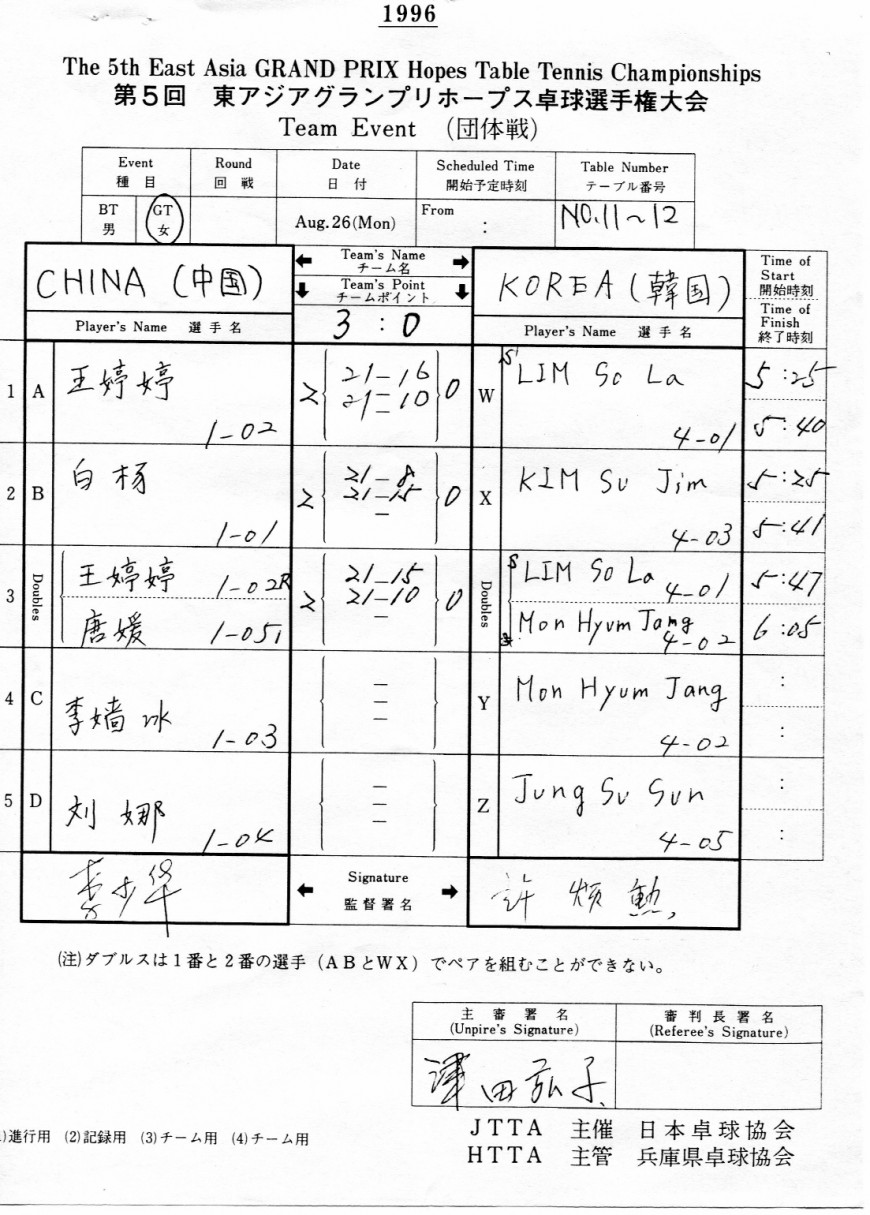 1996
The 5th East Asia GRAND PRIX Hopes Table Tennis Championships
第5回 東アジアグランプリホープス卓球選手権大会
Team Event (団体戦)
Event Round Date Scheduled Time Table Number
種目 回戦 日付 開始予定時刻 テーブル番号
BT GT From
男 女 Aug.26(Mon) : NO.11~12
CHINA (中国) ← Team's Name → KOREA (韓国) Time of Start
チーム名 開始時刻
↓ Team's Point ↓ Time of Finish
チームポイント 終了時刻
Player's Name 選手名 3 : 0 Player's Name 選手名
1 A 王婷婷 1-02 2 21-16 0 W S LIM So La 4-01 5:25
21-10 5:40
2 B 白杨 1-01 2 21-8 0 X KIM Su Jim 4-03 5:25
21-15 5:41
3 Doubles 王婷婷 1-02R 2 21-15 0 Doubles S LIM So La 4-01 5:47
唐媛 1-05 21-10 Mon Hyum Jang 4-02 6:05
4 C 李嫱冰 1-03 Y Mon Hyum Jang 4-02 :
5 D 刘娜 1-04 Z Jung Su Sun 4-05 :
← Signature →
監督署名
(注)ダブルスは1番と2番の選手(ABとWX)でペアを組むことができない。
主審署名 審判長署名
(Unpire's Signature) (Referee's Signature)
澤田弘子
)進行用 (2)記録用 (3)チーム用 (4)チーム用
JTTA 主催 日本卓球協会
HTTA 主管 兵庫県卓球協会